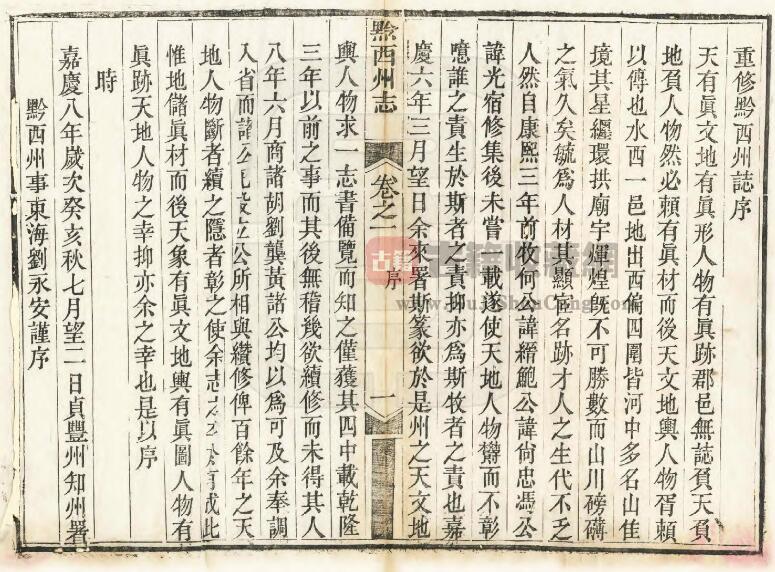 重修黔西州誌序
天有眞文地有眞形人物有眞跡郡邑無誌負天負
地負人物然必頼有眞材而後天文地輿人物胥頼
以傳也水西一邑地出西偏四圍皆河中多名山佳
境其星纒環拱廟宇輝煌旣不可勝數而山川磅礴
之氣久矣毓爲人材其顯宦名跡才人之生代不乏
人然自康熙三年前牧何公諱縉鮑公諱尙忠馮公
諱光宿修集後未嘗一載遂使天地人物鬱而不彰
噫誰之責生於斯者之責抑亦爲斯牧者之責也嘉
慶六年三月望日余來署斯篆欲於是州之天文地
黔西州志
卷之一
序
一
輿人物求一志書備覽而知之僅獲其四中載乾隆
三年以前之事而其後無稽幾欲續修而未得其人
八年六月商諸胡劉龔黃諸公均以爲可及余奉調
入省而諸公立公所相與纘修俾百餘年之天
地人物斷者續之隱者彰之使余志成此
惟地儲眞材而後天象有眞文地輿有眞圖人物有
眞跡天地人物之幸抑亦余之幸也是以序
時
嘉慶八年歲次癸亥秋七月望二日貞豐州知州署
黔西州事東海劉永安謹序
古籍
古籍收藏網